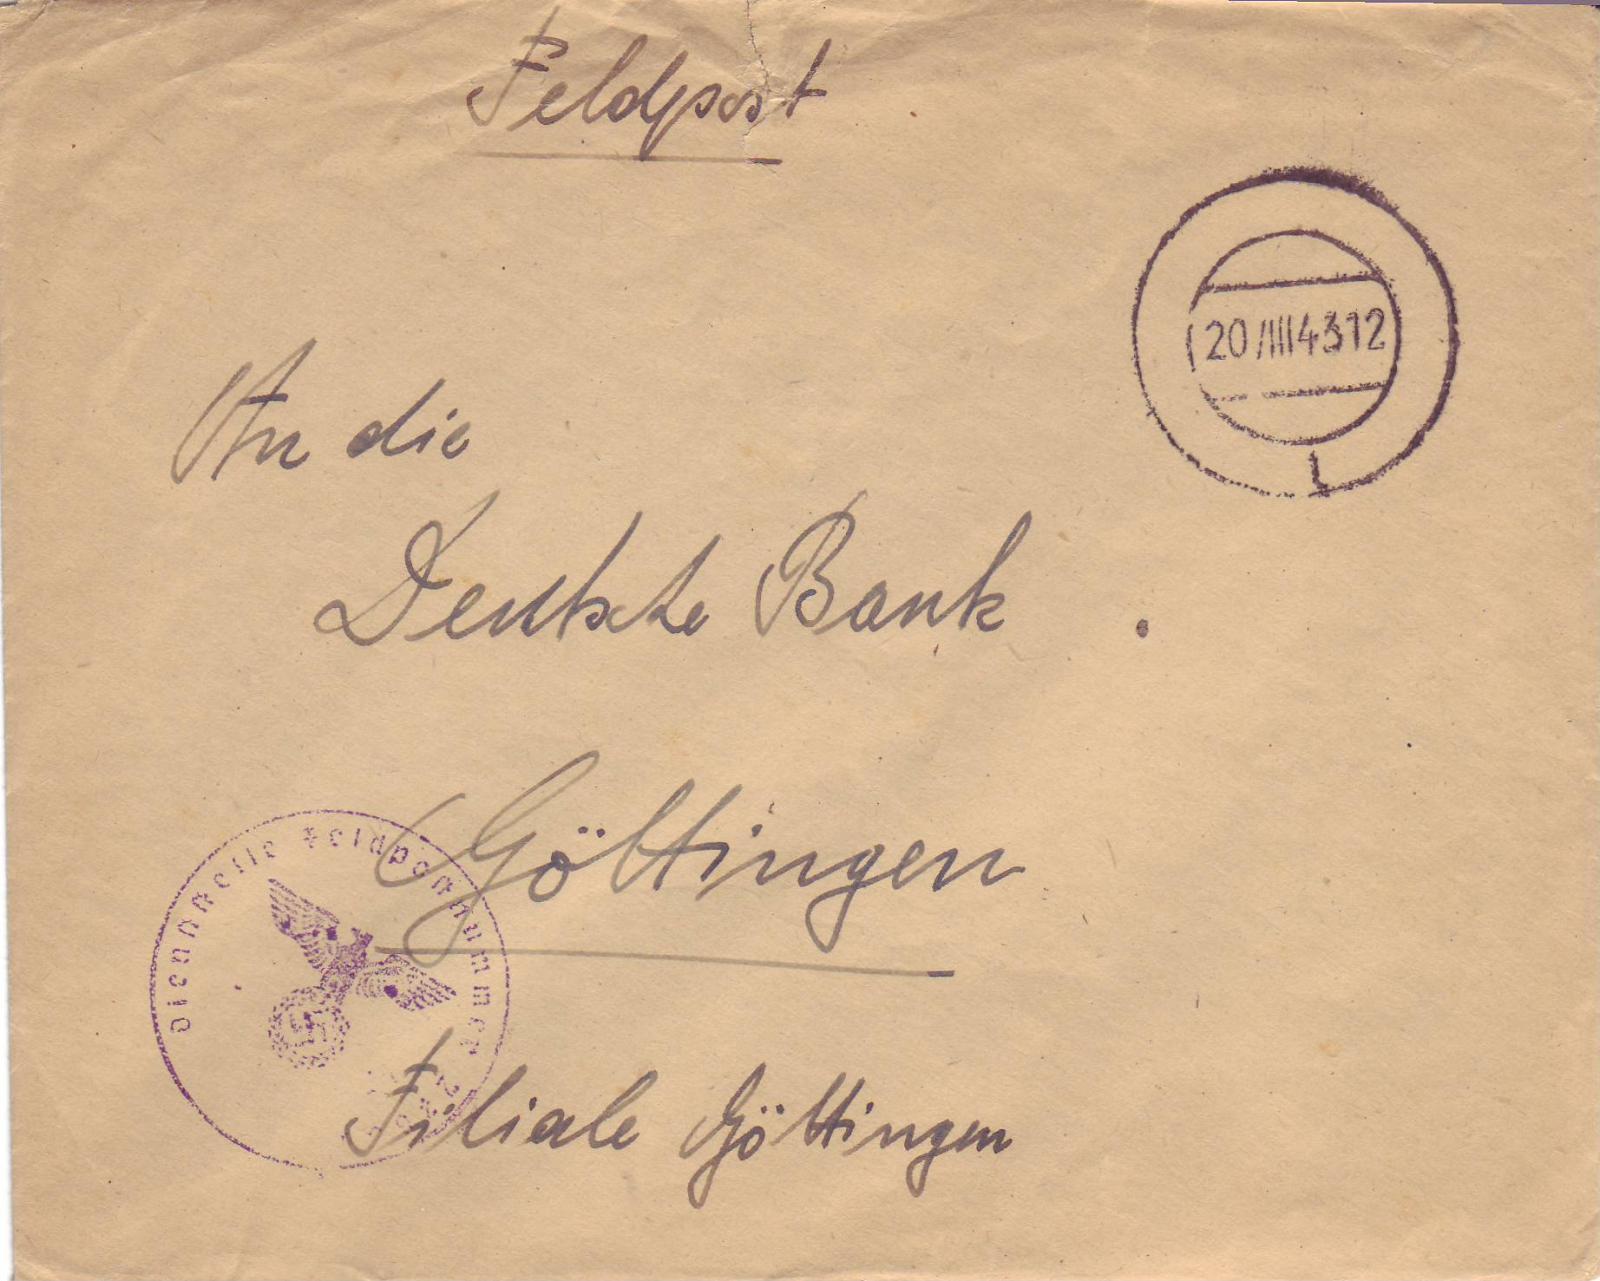 Feldpost
20 III 43 12
An die
Deutsche Bank
Göttingen
Dienststelle Feldpostnummer
Filiale Göttingen